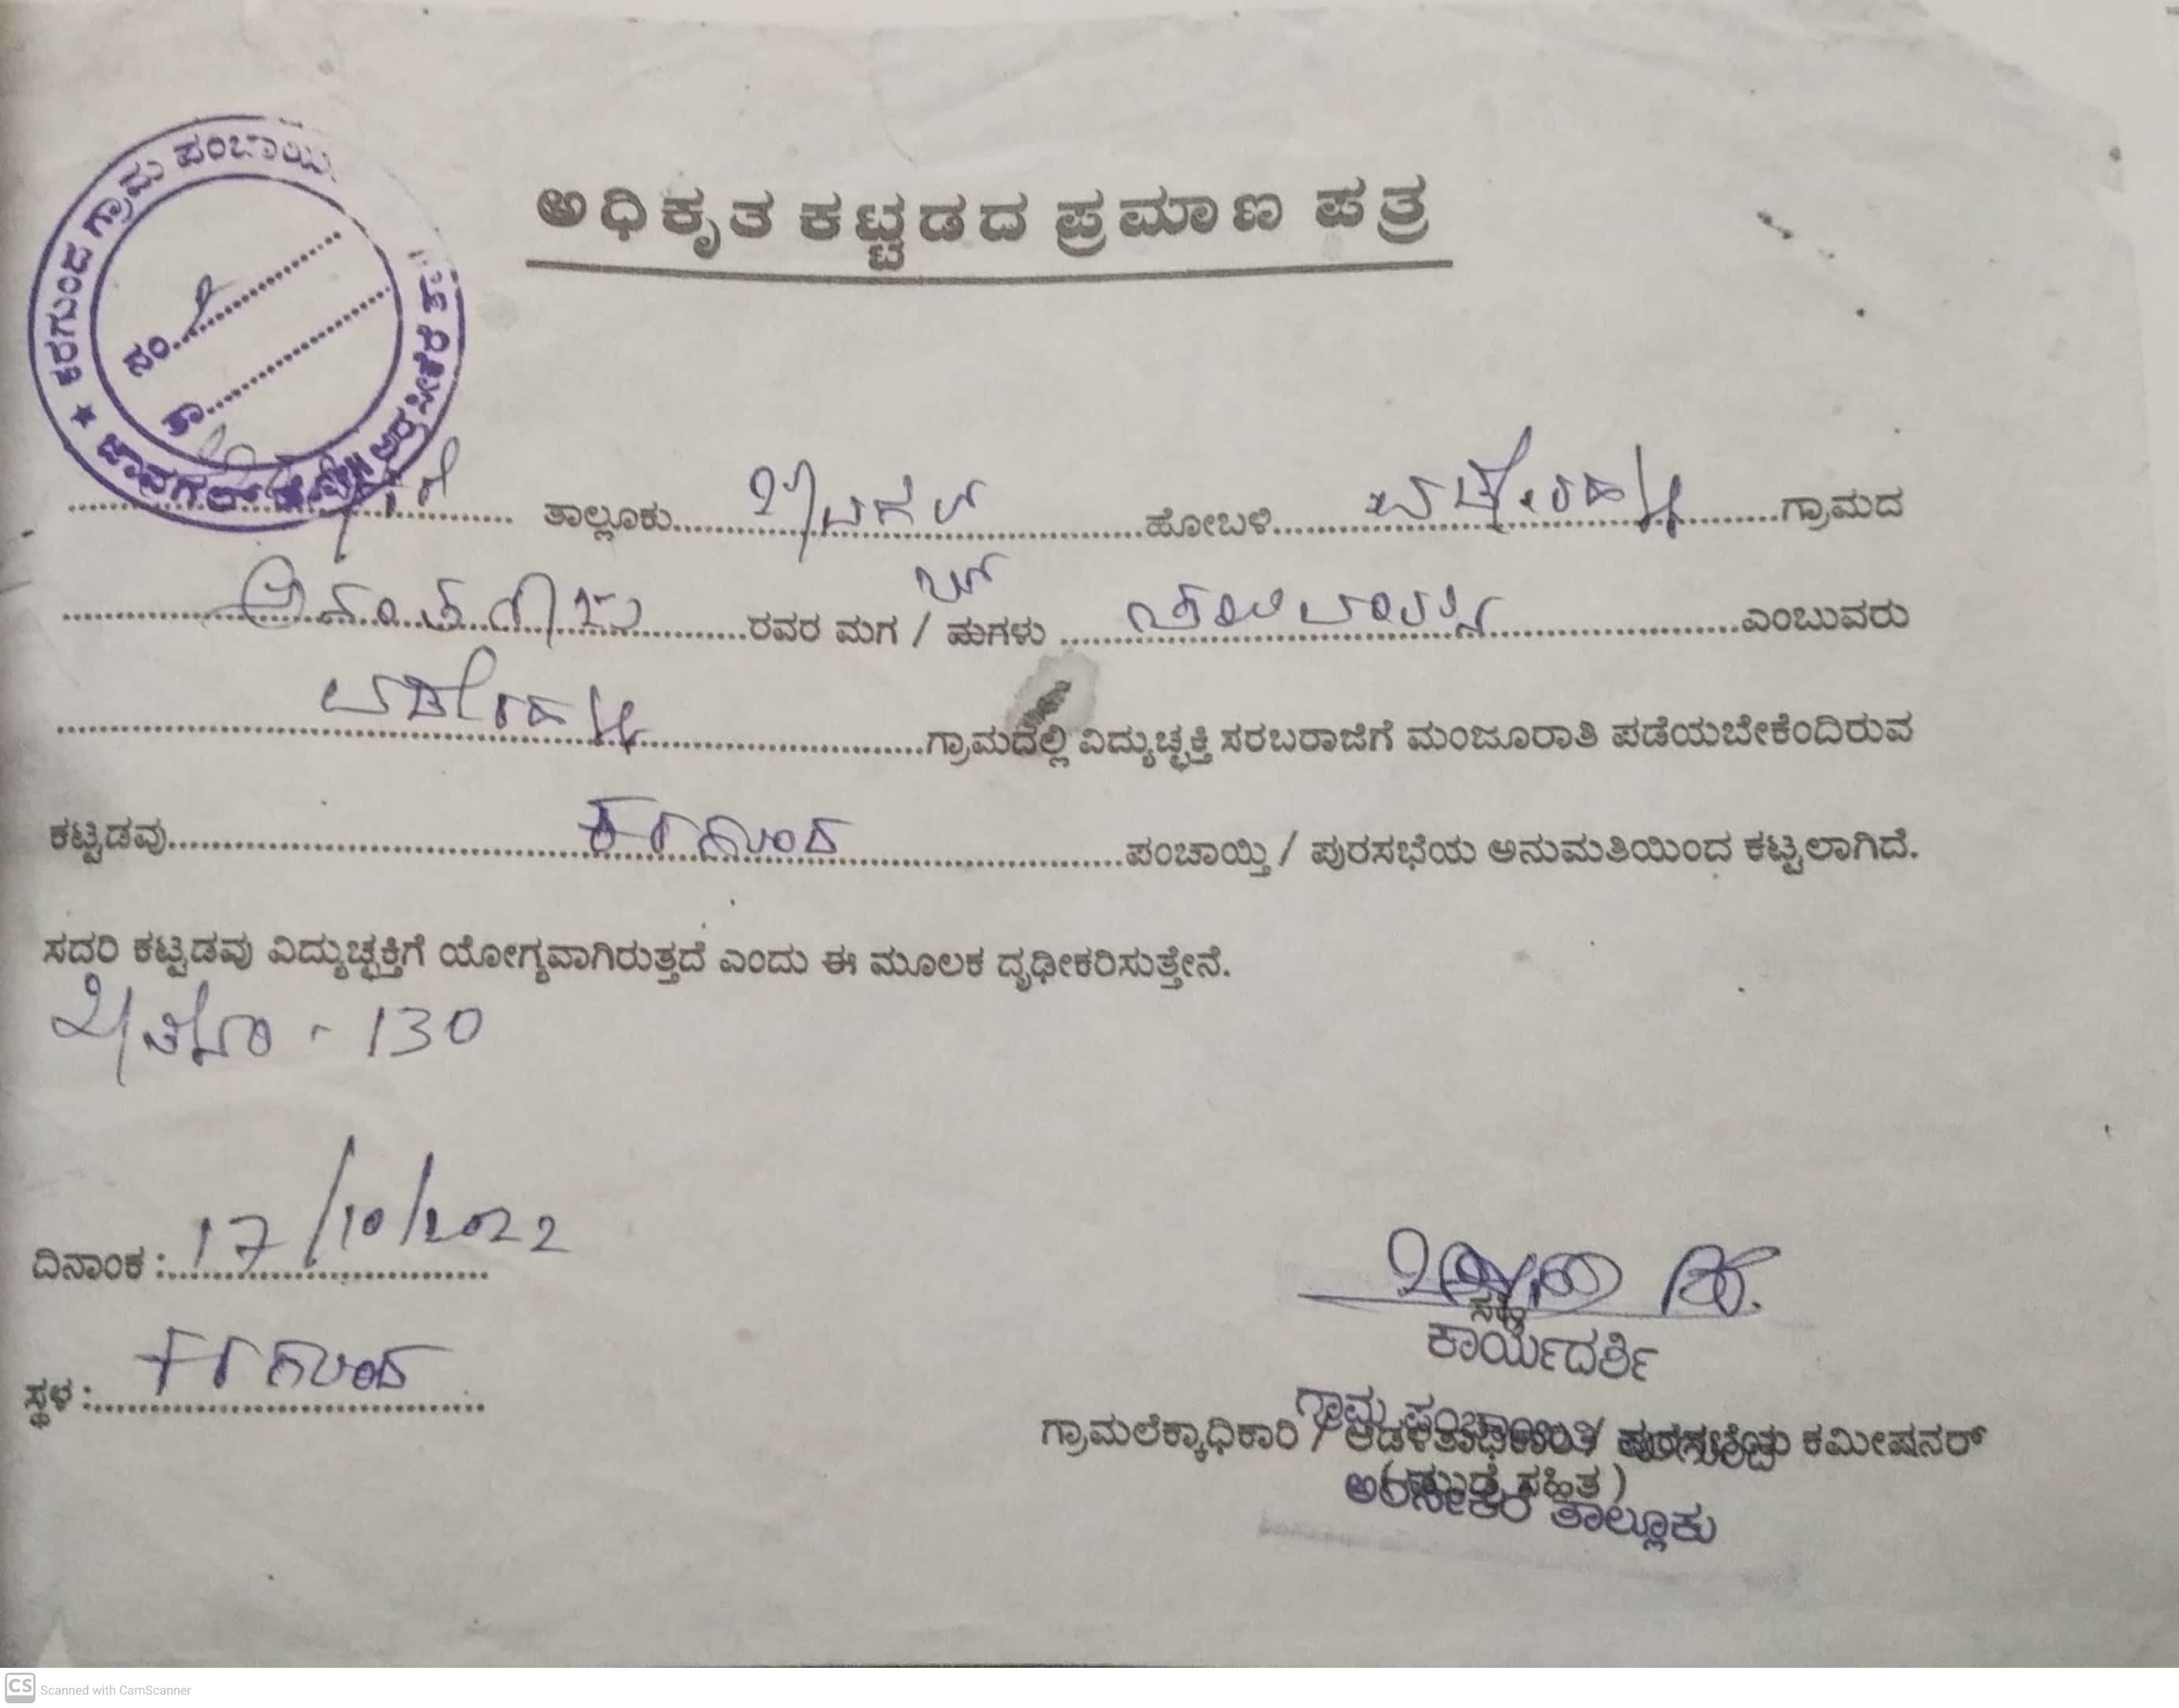 ಕರಗುಂದ ಗ್ರಾಮ ಪಂಚಾಯಿ
ಜಾವಗಲ್ ಅರಸೀಕೆರೆ ತಾ
ನಂ.
ತಾ
ಅಧಿಕೃತ ಕಟ್ಟಡದ ಪ್ರಮಾಣ ಪತ್ರ
ತಾಲ್ಲೂಕು ಜಾವಗಲ್ ಹೋಬಳಿ ಗ್ರಾಮದ
ರವರ ಮಗ / ಮಗಳು ಎಂಬುವರು
ಗ್ರಾಮದಲ್ಲಿ ವಿದ್ಯುಚ್ಛಕ್ತಿ ಸರಬರಾಜಿಗೆ ಮಂಜೂರಾತಿ ಪಡೆಯಬೇಕೆಂದಿರುವ
ಕಟ್ಟಡವು ಕರಗುಂದ ಪಂಚಾಯ್ತಿ / ಪುರಸಭೆಯ ಅನುಮತಿಯಿಂದ ಕಟ್ಟಲಾಗಿದೆ.
ಸದರಿ ಕಟ್ಟಡವು ವಿದ್ಯುಚ್ಛಕ್ತಿಗೆ ಯೋಗ್ಯವಾಗಿರುತ್ತದೆ ಎಂದು ಈ ಮೂಲಕ ದೃಢೀಕರಿಸುತ್ತೇನೆ.
- 130
ದಿನಾಂಕ : 17/10/2022
ಸ್ಥಳ : ಕರಗುಂದ
ಸಹಿ
ಕಾರ್ಯದರ್ಶಿ
ಗ್ರಾಮ ಪಂಚಾಯಿತಿ ಕರಗುಂದ
ಗ್ರಾಮಲೆಕ್ಕಾಧಿಕಾರಿ / ಆಡಳಿತಾಧಿಕಾರಿ / ಪುರಸಭೆಯ ಕಮೀಷನರ್
( ಮುದ್ರೆ ಸಹಿತ )
ಅರಸೀಕೆರೆ ತಾಲ್ಲೂಕು
CS Scanned with CamScanner